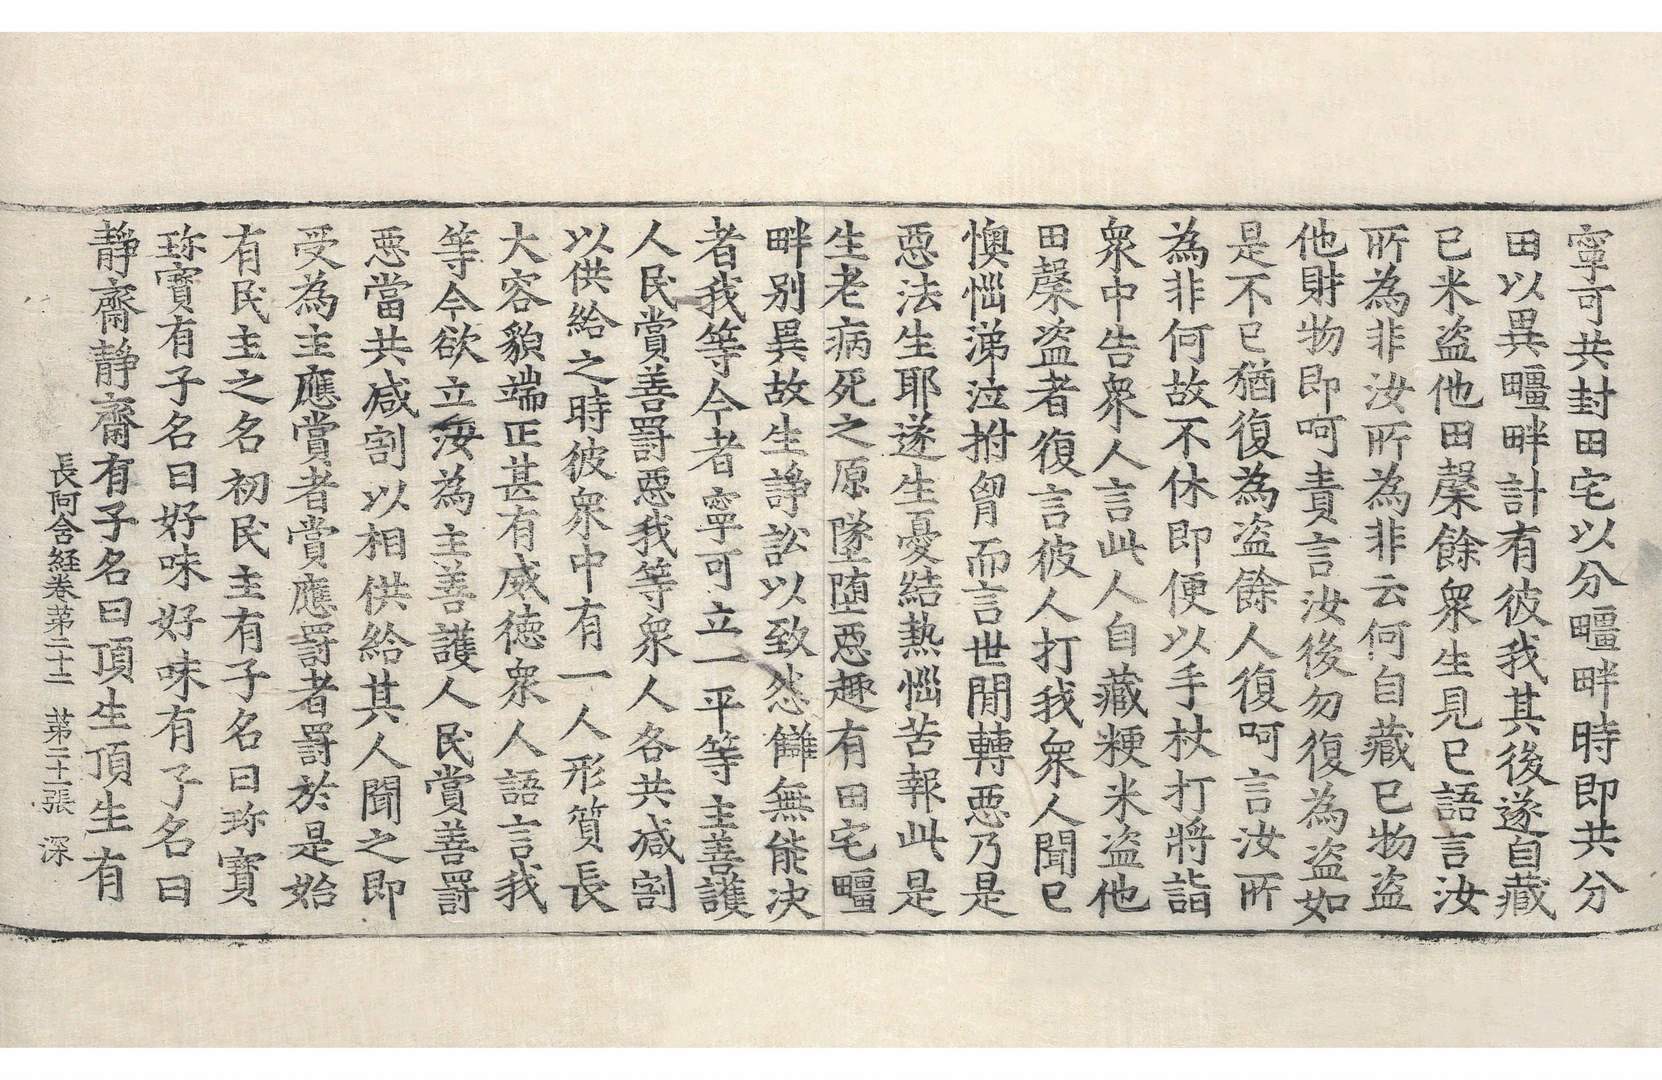 寧可共封田宅以分疆畔時即共分
田以異疆畔計有彼我其後遂自藏
已米盜他田穀餘衆生見已語言汝
所為非汝所為非云何自藏已物盜
他財物即呵責言汝後勿復為盜如
是不已猶復為盜餘人復呵言汝所
為非何故不休即便以手杖打將詣
衆中告衆人言此人自藏粳米盜他
田穀盜者復言彼人打我衆人聞已
懊惱涕泣拊胷而言世間轉惡乃是
惡法生耶遂生憂結熱惱苦報此是
生老病死之原墜墮惡趣有田宅疆
畔別異故生諍訟以致怨讎無能決
者我等今者寧可立一平等主善護
人民賞善罰惡我等衆人各共減割
以供給之時彼衆中有一人形質長
大容貌端正甚有威德衆人語言我
等今欲立汝為主善護人民賞善罰
惡當共減割以相供給其人聞之即
受為主應賞者賞應罰者罰於是始
有民主之名初民主有子名曰珎寶
珎寶有子名曰好味好味有子名曰
靜齋靜齋有子名曰頂生頂生有
長阿含経卷苐二十二 苐二十一張 深